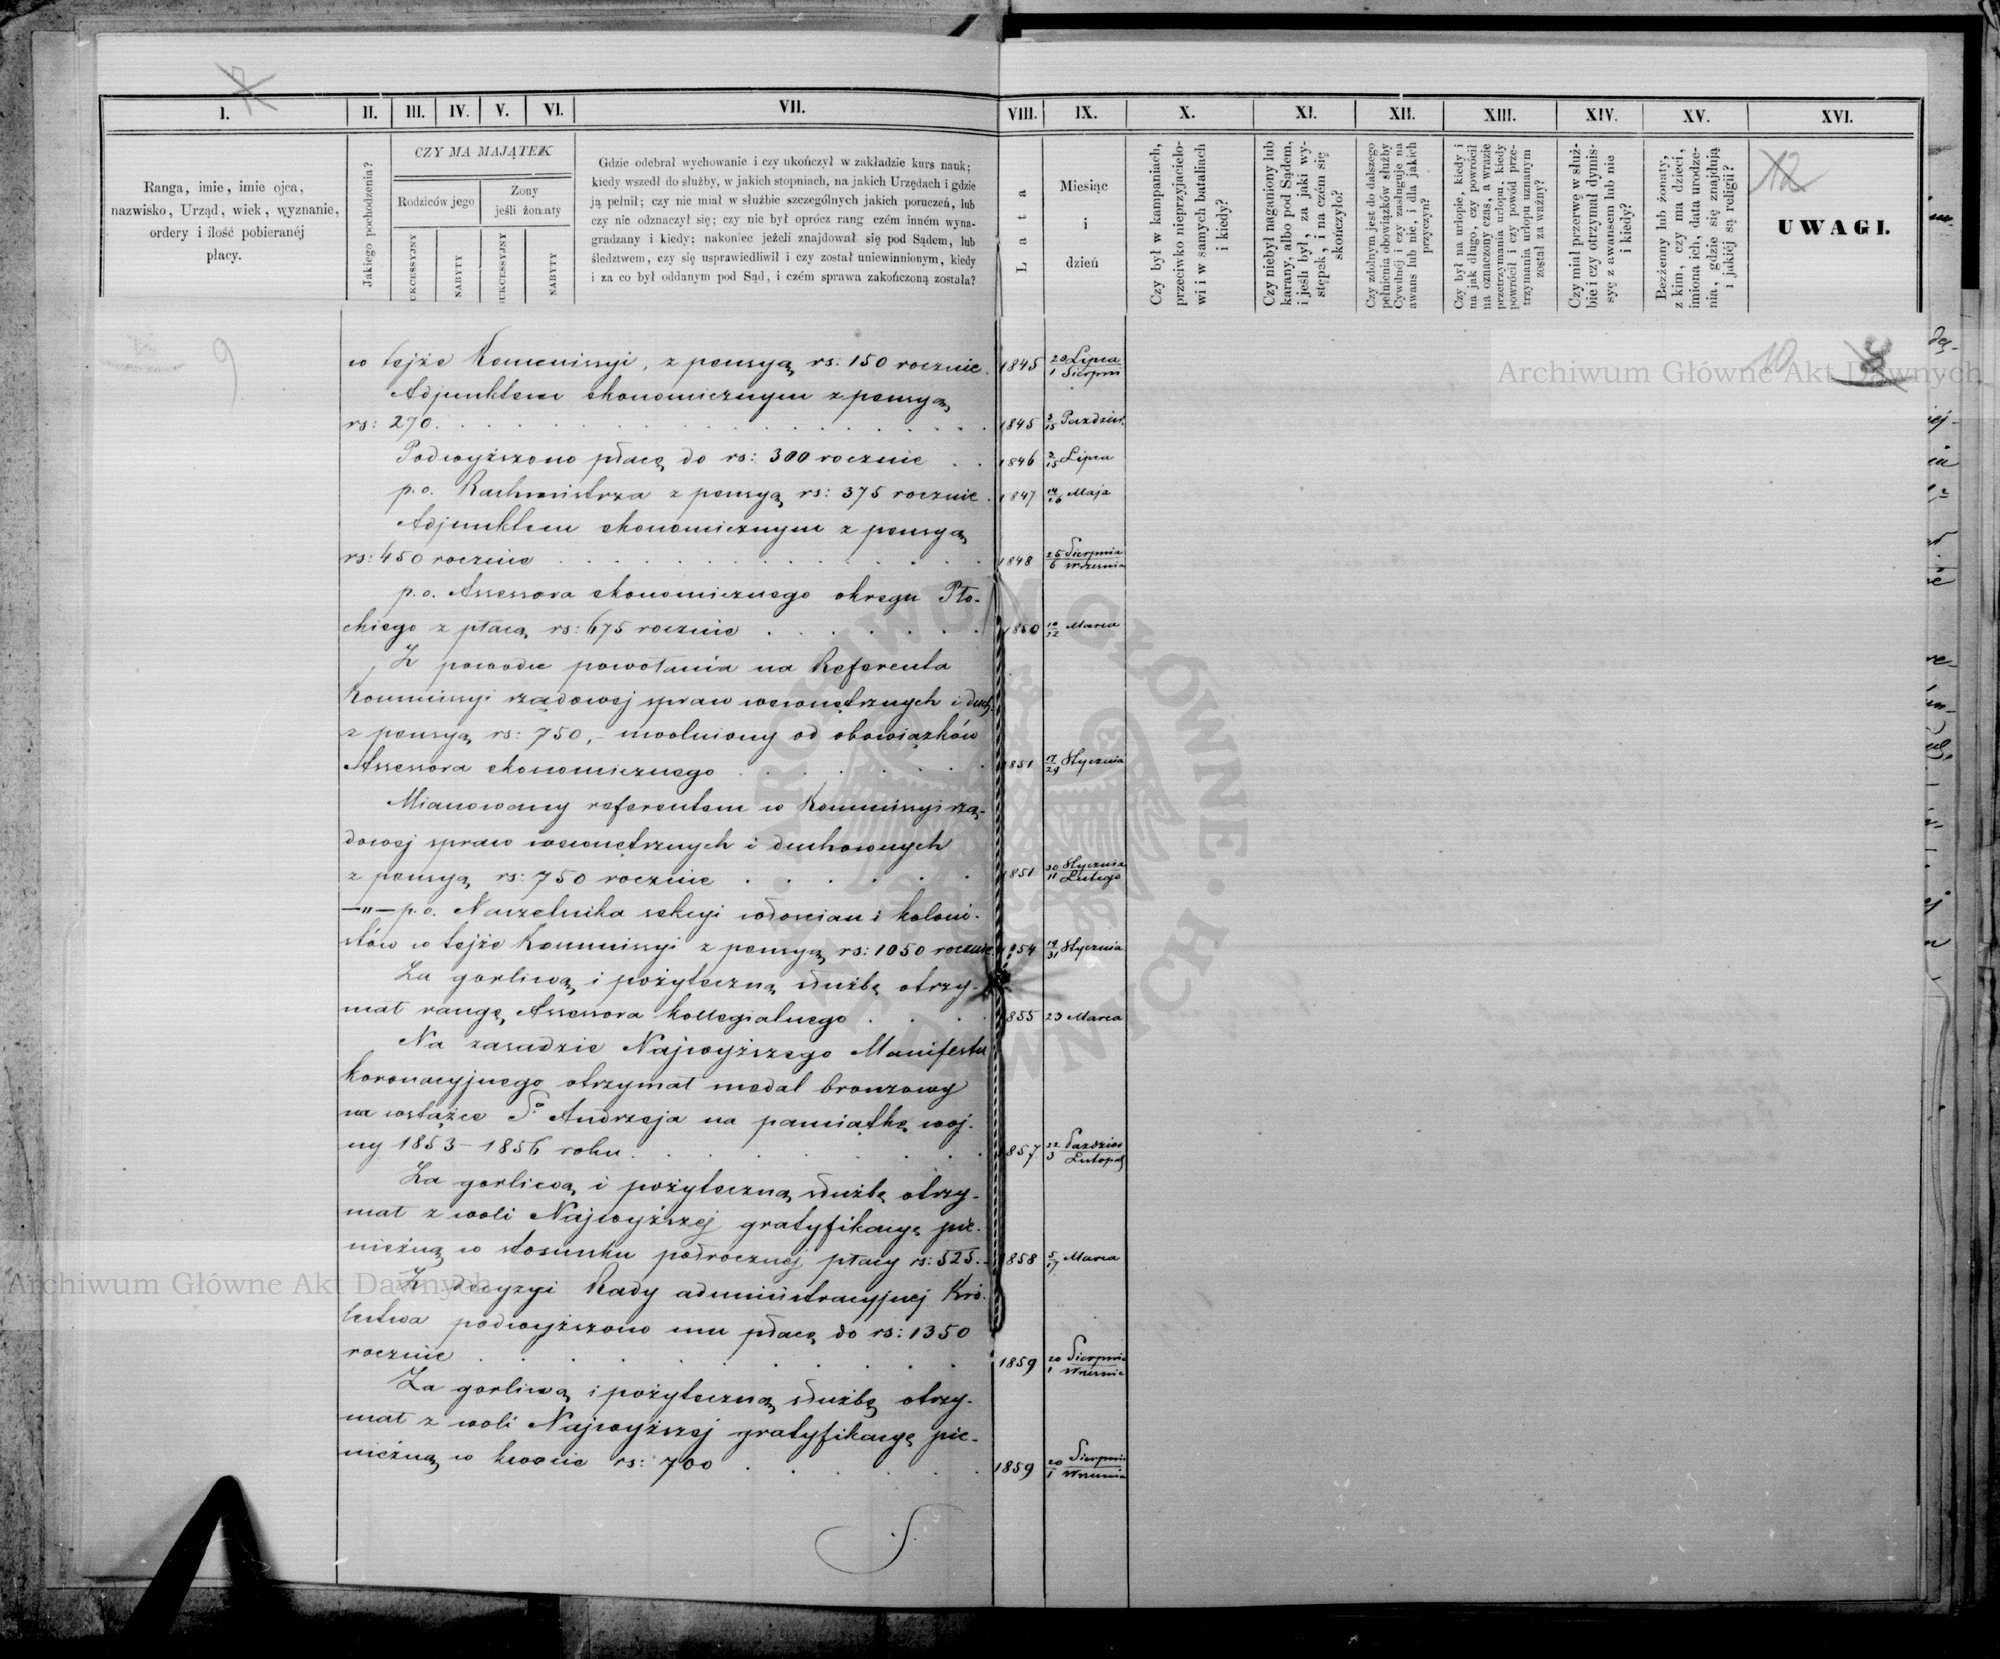 I. II. III. IV. V. VI. VII. VIII. IX. X. XI. XII. XIII. XIV. XV. XVI.
12
Ranga, imie, imie ojca,
nazwisko, Urząd, wiek, wyznanie,
ordery i ilość pobieranéj
płacy.
Jakiego pochodzenia?
CZY MA MAJĄTEK
Rodziców jego
Żony
jeśli żonaty
SUKCESSYJNY
NABYTY
SUKCESSYJNY
NABYTY
Gdzie odebrał wychowanie i czy ukończył w zakładzie kurs nauk;
kiedy wszedł do służby, w jakich stopniach, na jakich Urzędach i gdzie
ją pełnił; czy nie miał w służbie szczególnych jakich poruczeń, lub
czy nie odznaczył się; czy nie był oprócz rang czém inném wyna-
gradzany i kiedy; nakoniec jeżeli znajdował się pod Sądem, lub
śledztwem, czy się usprawiedliwił i czy został uniewinnionym, kiedy
i za co był oddanym pod Sąd, i czém sprawa zakończoną została?
Lata
Miesiąc
i
dzień
Czy był w kampaniach,
przeciwko nieprzyjacielo-
wi i w samych bataliach
i kiedy?
Czy niebył naganiony lub
karany, albo pod Sądem,
i jeśli był, za jaki wy-
stępek, i na czém się
skończyło?
Czy zdolnym jest do dalszego
pełnienia obowiązków służby
Cywilnéj i czy zasługuje na
awans lub nie, i dla jakich
przyczyn?
Czy był na urlopie, kiedy i
na jak długo, czy powrócił
na oznaczony czas, a wrazie
przetrzymania urlopu, kiedy
powrócił i czy powód prze-
trzymania urlopu uznanym
został za ważny?
Czy miał przerwę w służ-
bie i czy otrzymał dymis-
syę z awansem lub nie
i kiedy?
Bezżenny lub żonaty,
z kim, czy ma dzieci,
imiona ich, data urodze-
nia, gdzie się znajdują
i jakiéj są religii?
UWAGI.
9
10
Archiwum Główne Akt Dawnych
w tejże Kommissyi, z pensyą rs: 150 rocznie. 1845 20/1 Lipca/Sierpni
Adjunktem ekonomicznym z pensyą
rs: 270. 1845 3/15 Paździer.
Podwyższono płacę do rs: 300 rocznie 1846 3/15 Lipca
p.o. Rachmistrza z pensyą rs: 375 rocznie. 1847 14/26 Maja
Adjunktem ekonomicznym z pensyą
rs: 450 rocznie 1848 25/6 Sierpnia/Września
p.o. Assessora ekonomicznego okręgu Pło-
ckiego z płacą rs: 675 rocznie 1850 10/22 Marca
Z powodu powołania na Referenta
Kommissyi rządowej spraw wewnętrznych i duch.
z pensyą rs: 750, - uwolniony od obowiązków
Assessora ekonomicznego 1851 17/29 Stycznia
Mianowany referentem w Kommissyi rzą-
dowej spraw wewnętrznych i duchownych
z pensyą rs: 750 rocznie 1851 30/11 Stycznia/Lutego
—"— p.o. Naczelnika sekcyi włościan i koloni-
stów w tejże Kommissyi z pensyą rs: 1050 rocznie 1854 19/31 Stycznia
Za gorliwą i pożyteczną służbę otrzy-
mał rangę Assessora kollegialnego 1855 23 Marca
Na zasadzie Najwyższego Manifestu
koronacyjnego otrzymał medal bronzowy
na wstążce Sº Andrzeja na pamiątkę woj-
ny 1853 - 1856 roku. 1857 22/3 Paździer/Listopad
Za gorliwą i pożyteczną służbę otrzy-
mał z woli Najwyższej gratyfikacyę pie-
niężną w stosunku półrocznej płacy rs: 525. 1858 5/17 Marca
Z decyzyi Rady administracyjnej Kró-
lestwa podwyższono mu płacę do rs: 1350
rocznie 1859 20/1 Sierpnia/Wrześnie
Za gorliwą i pożyteczną służbę otrzy-
mał z woli Najwyższej gratyfikacyę pie-
niężną w kwocie rs: 700 1859 20/1 Sierpnia/Września
Archiwum Główne Akt Dawnych
ARCHIWUM GŁÓWNE AKT DAWNYCH